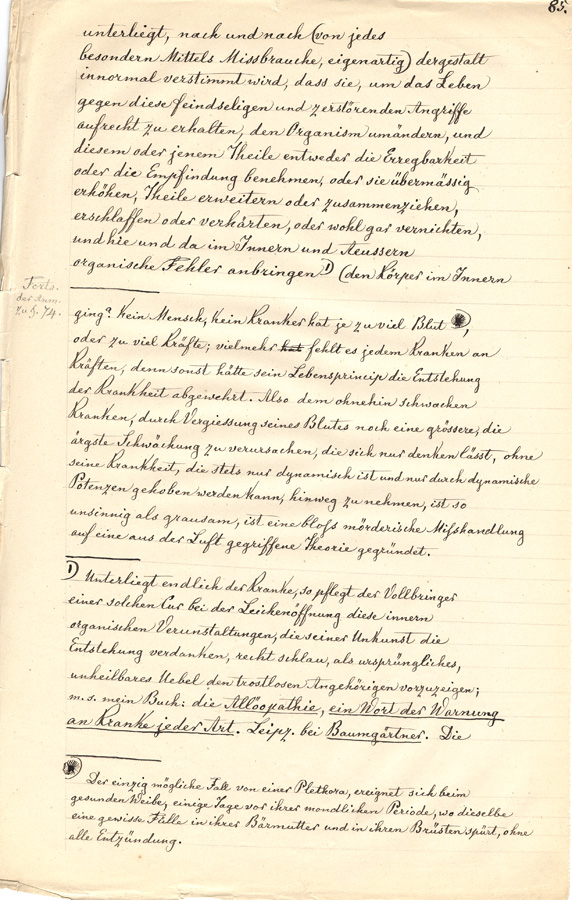 85.
unterliegt, nach und nach (von jedes
besondern Mittels Missbrauche, eigenartig) dergestalt
innormal verstimmt wird, dass sie, um das Leben
gegen diese feindseligen und zerstörenden Angriffe
aufrecht zu erhalten, den Organism umändern, und
diesem oder jenem Theile entweder die Erregbarkeit
oder die Empfindung benehmen, oder sie übermässig
erhöhen, Theile erweitern oder zusammenziehen,
erschlaffen oder verhärten, oder wohl gar vernichten,
und hie und da im Innern und Aeussern
organische Fehler anbringen 1) (den Körper im Innern
Forts.
der Anm.
zu §. 74.
ging? Kein Mensch, kein Kranker hat je zu viel Blut *),
oder zu viel Kräfte; vielmehr hat fehlt es jedem Kranken an
Kräften, denn sonst hätte sein Lebensprincip die Entstehung
der Krankheit abgewehrt. Also dem ohnehin schwachen
Kranken, durch Vergiessung seines Blutes noch eine grössere, die
ärgste Schwächung zu verursachen, die sich nur denken lässt, ohne
seine Krankheit, die stets nur dynamisch ist und nur durch dynamische
Potenzen gehoben werden kann, hinweg zu nehmen, ist so
unsinnig als grausam, ist eine bloſs mörderische Miſshandlung
auf eine aus der Luft gegriffene Theorie gegründet.
1) Unterliegt endlich der Kranke, so pflegt der Vollbringer
einer solchen Cur bei der Leichenöffnung diese innern
organischen Verunstaltungen, die seiner Unkunst die
Entstehung verdanken, recht schlau, als ursprüngliches,
unheilbares Uebel den trostlosen Angehörigen vorzuzeigen;
m. s. mein Buch: die Allöopathie, ein Wort der Warnung
an Kranke jeder Art. Leipz. bei Baumgärtner. Die
*) Der einzig mögliche Fall von einer Plethora, ereignet sich beim
gesunden Weibe, einige Tage vor ihrer mondlichen Periode, wo dieselbe
eine gewisse Fülle in ihrer Bärmutter und in ihren Brüsten spürt, ohne
alle Entzündung.